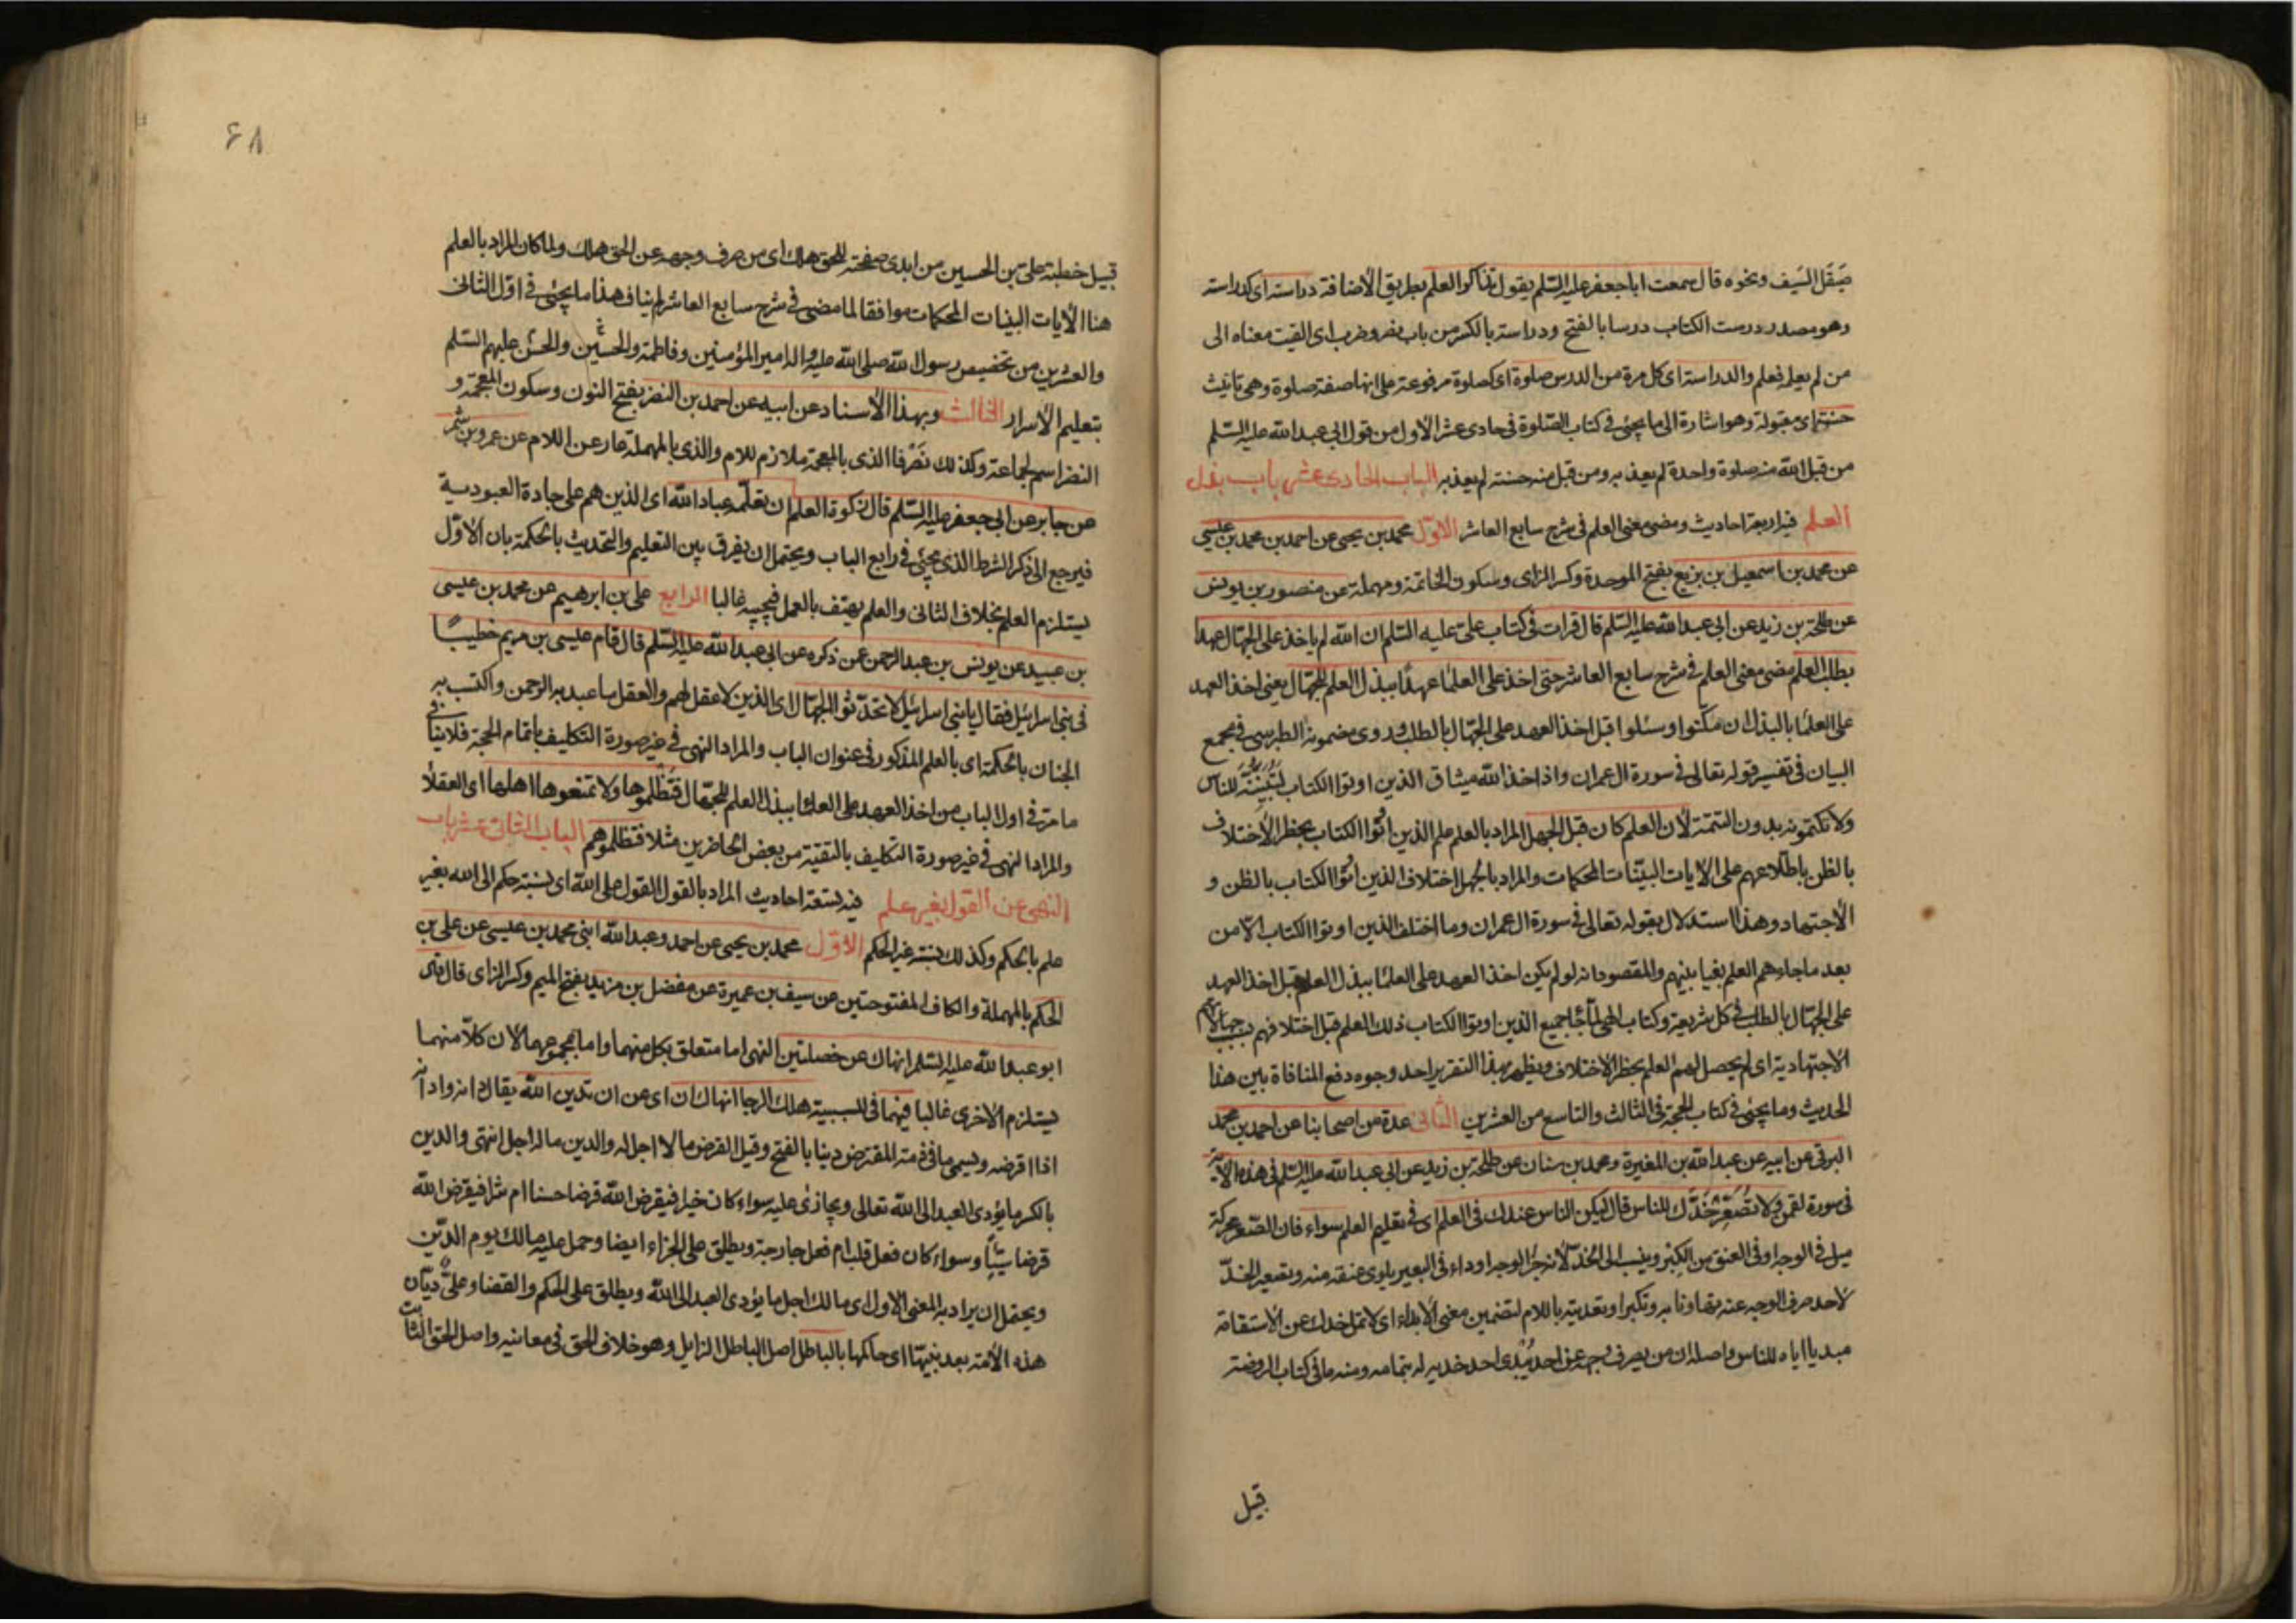 صَقَلَ السَيف ونحوه قال سمعت ابا جعفر عليه السّلم يقول تذاكر العلم بطريق الأضافة دراسة اى كدراسة
وهو مصدر درست الكتاب درسا بالفتح ودراسة بالكسر من باب نصر وضرب اى القيت معناه الى
من لم يعلم فعلم والدراسة اى كل مرة من الدرس صلوة اى كصلوة مرفوعة على انها صفة صلوة وهى تانيث
حسنة اى مقبولة وهو اشارة الى ما يجئ فى كتاب الصّلوة فى حادى عشر الأول من قول ابى عبد الله عليه السّلم
من قبل الله منه صلوة واحدة لم يعذبه ومن قبل منه حسنة لم يعذبه الباب الحادى عشر باب بذل
العلم فيه اربعة احاديث ومضى معنى العلم فى شرح سابع العاشر الاوّل محمد بن يحيى عن احمد بن محمد بن عيسى
عن محمد بن اسمعيل بن بزيع بفتح الموحدة وكسر الزاى وسكون الخاتمة ومهملة عن منصور بن يونس
عن طلحة بن زيد عن ابى عبد الله عليه السّلم قال قرات فى كتاب على عليه السّلم ان الله لم ياخذ على الجهّال عهدا
بطلب العلم مضى معنى العلم فى شرح سابع العاشر حتى اخذ على العلمآ عهدًا ببذل العلم للجهّال يعنى اخذ العهد
على العلمآ بالبذل ان مكّنوا وسئلوا قبل اخذ العهد على الجهّال بالطلب وروى مضمونه الطبرسى فى مجمع
البيان فى تفسير قوله تعالى فى سورة ال عمران واذ اخذ الله ميثاق الذين اوتوا الكتاب لتبيّننّه للناس
ولا تكتمونه بدون التتمة لأن العلم كان قبل الجهل المراد بالعلم علم الذين اتُوا الكتاب بحظر الأختلاف
بالظن باطّلاعهم على الايات البيّنات المحكمات والمراد بالجهل اختلاف الذين اتُوا الكتاب بالظن و
الأجتهاد وهذا استدلال بقوله تعالى فى سورة ال عمران وما اختلف الذين اوتوا الكتاب الا من
بعد ماجاءهم العلم بغيا بينهم والمقصود انه لو لم يكن اخذ العهد على العلمآ ببذل العلم قبل اخذ العهد
على الجهّال بالطلب فى كل شريعة وكتاب الهى لما جُاء جميع الذين اوتوا الكتاب ذلك العلم قبل اختلافهم بسبب جهالاتهم
الاجتهادية اى لم يحصل لهم العلم بحظر الاختلاف ويظهر بهذا التقرير احد وجوه دفع المنافاة بين هذا
الحديث وما يجئ فى كتاب الحجة فى الثالث والتاسع من العشرين الثانى عدة من اصحابنا عن احمد بن محمد
البرقى عن ابيه عن عبد الله بن المغيرة ومحمد بن سنان عن طلحة بن زيد عن ابى عبد الله عليه السّلم فى هذه الاية
فى سورة لقمن ولا تُصَعِّرْ خَدَّك للناس قال ليكن الناس عندك فى العلم اى فى تعليم العلم سواء فان الصّعر محركة
ميل فى الوجه او فى العنق من الكِبْر وينسب الى الخدّ لأنه جزء الوجه او داء فى البعير يلوى عنقه منه وتصعير الخدّ
لاحد صرف الوجه عنه تهاونا به وتكبرا وتعديته باللام لتضمين معنى الأبداء اى لا تمل خدك عن الأستقامة
مبديا اياه للناس واصله ان من يصرف وجهه عن احد يُبْدى احد خديه له بتمامه ومنه ما فى كتاب الروضة
قبيل
۶۸
قبيل خطبة على بن الحسين من ابدى صفحته للحق هلك اى من صرف وجهه عن الحق هلك ولما كان المراد بالعلم
هنا الأيات البينات المحكمات موافقا لما مضى فى شرح سابع العاشر لم يناف هذا ما يجئ فى اوّل الثانى
والعشرين من تخصيص رسول الله صلى الله عليه واله امير المؤمنين وفاطمة والحسين والحسن عليهم السّلم
بتعليم الأسرار الثالث وبهذا الأسناد عن ابيه عن احمد بن النضر بفتح النون وسكون المعجمة و
النضر اسم لجماعة وكذلك نَصْر فا الذى بالمعجمة ملازم للام والذى بالمهملة عار عن اللام عن عمرو بن شمر
عن جابر عن ابى جعفر عليه السّلم قال زكوة العلم ان تعلّمه عباد الله اى الذين هم على جادة العبودية
فيرجع الى ذكر الشرط الذى يجئ فى رابع الباب ويحتمل ان يفرق بين التعليم والتحديث بالحكمة بان الاوّل
يستلزم العلم بخلاف الثانى والعلم يهتف بالعمل فيجيبه غالبا الرابع على بن ابرهيم عن محمد بن عيسى
بن عبيد عن يونس بن عبد الرحمن عمن ذكره عن ابى عبد الله عليه السّلم قال قام عيسى بن مريم خطيبًا
فى بنى اسرائيل فقال يا بنى اسرائيل لا تحدّثوا الجهّال اى الذين لا عقل لهم والعقل ما عبد به الرحمن واكتسب به
الجنان بالحكمة اى بالعلم المذكور فى عنوان الباب والمراد النهى فى غير صورة التكليف باتمام الحجة فلا ينافى
ما مرّ فى اول الباب من اخذ العهد على العلمآ ببذل العلم للجهّال فتظلموها ولا تمنعوها اهلها اى العقلآ
والمراد النهى فى غير صورة التكليف بالتقيّة من بعض الحاضرين مثلا فتظلموهم الباب الثانى عشر باب
النهى عن القول بغير علم فيه تسعة احاديث المراد بالقول القول على الله اى نسبة حكم الى الله بغير
علم بالحكم وكذلك نسبة غير الحكم الاوّل محمد بن يحيى عن احمد وعبد الله ابنى محمد بن عيسى عن على بن
الحكم بالمهملة والكاف المفتوحتين عن سيف بن عميرة عن مفضل بن مزيد بفتح الميم وكسر الزاى قال قال
ابو عبد الله عليه السّلم انهاك عن خصلتين النهى اما متعلق بكل منهما واما بمجموعهما لان كلّا منهما
يستلزم الأخرى غالبا فيهما فى للسببية هلك الرجال انهاك ان اى عن ان تدين الله يقال دانه وادانه
اذا اقرضه ويسمى ما فى ذمة المقترض دينا بالفتح وقيل القرض ما لا اجل له والدين ماله اجل انتهى والدين
بالكسر ما يؤدى العبد الى الله تعالى ويجازى عليه سواء كان خيرا فيقرض الله قرضا حسنا ام شرا فيقرض الله
قرضا سيّئًا وسواء كان فعل قلب ام فعل جارحة ويطلق على الجزاء ايضا وحمل عليه مالك يوم الدّين
ويحتمل ان يراد به المعنى الاول اى مالك اجل ما يؤدى العبد الى الله ويطلق على الحكم والقضا وعلىّ ديّان
هذه الأمّة بعد نبيّها اى حاكمها بالباطل اصل الباطل الزايل وهو خلاف الحق فى معانيه واصل الحق الثابت